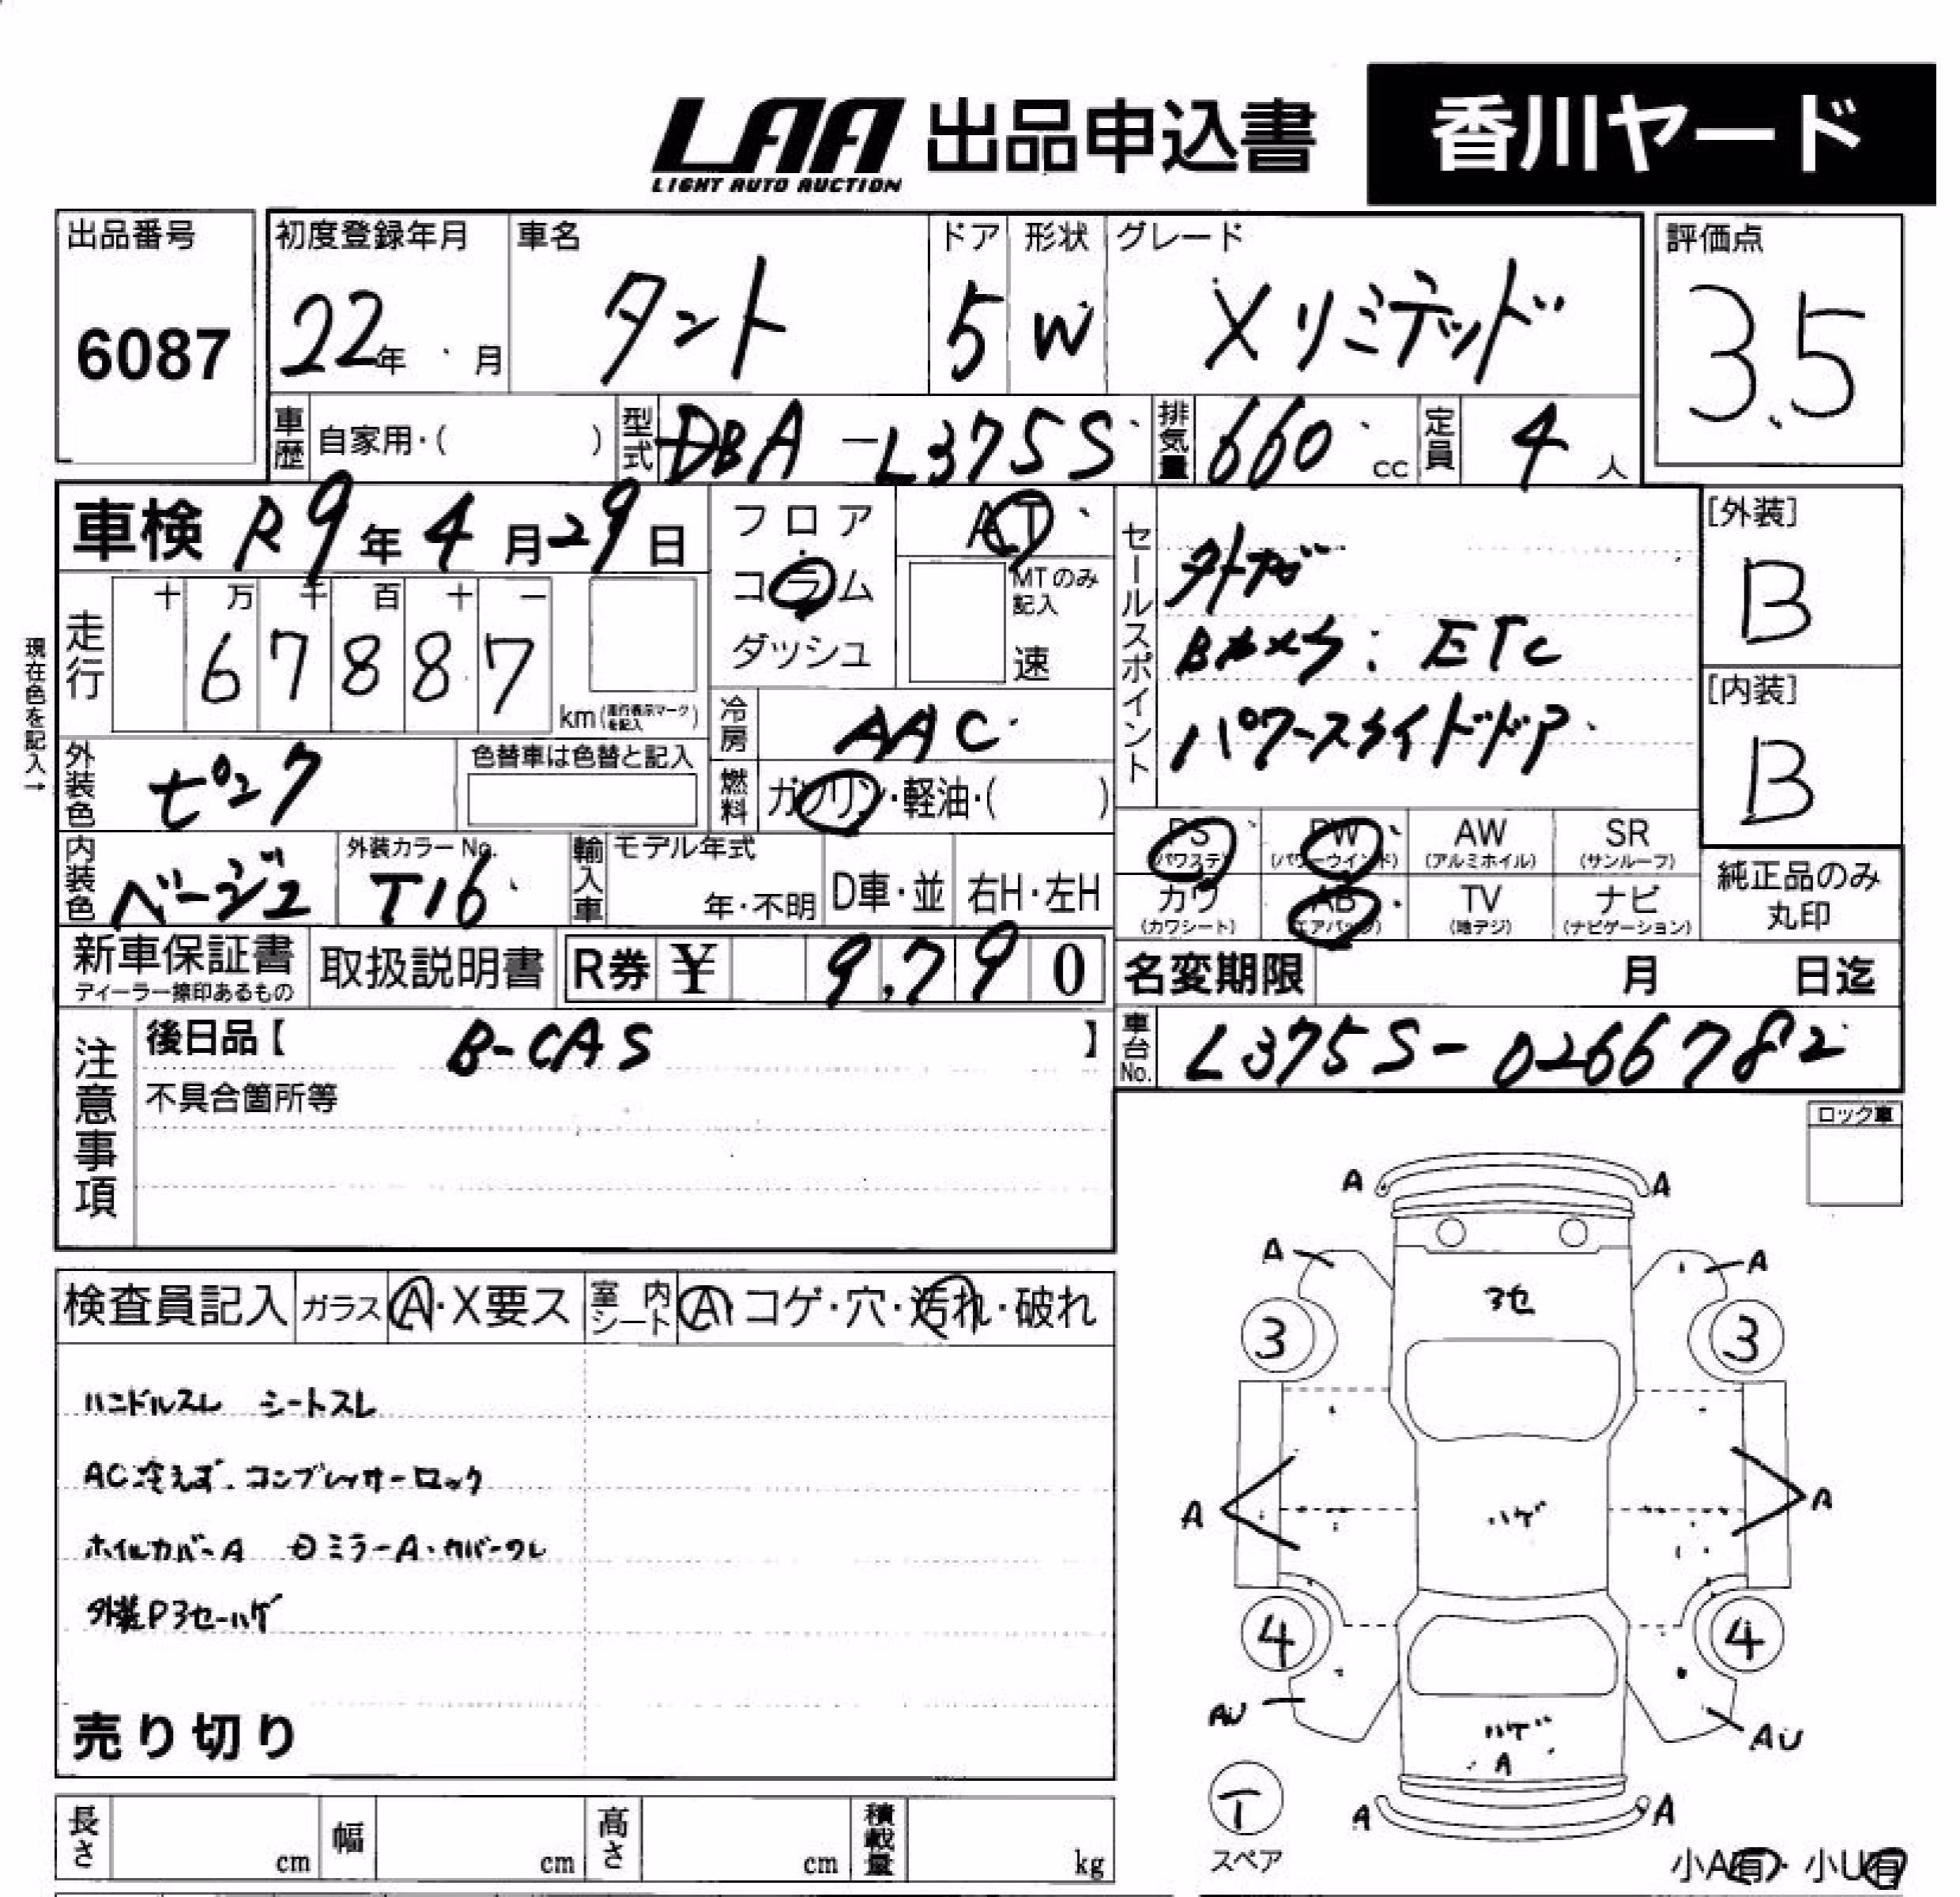 LAA 出品申込書 香川ヤード
LIGHT AUTO AUCTION
出品番号 初度登録年月 車名 ドア 形状 グレード 評価点
6087 22年 月 タント 5 W Xリミテッド 3.5
車歴 自家用・( ) 型式 DBA-L375S 排気量 660 cc 定員 4 人
車検 R9年4月29日 フロア AT セールスポイント [外装]
コラム MTのみ記入 B
ダッシュ 速
走行 十 万 千 百 十 一
6 7 8 8 7 km(走行表示マークを記入)
Bカメラ: ETC
パワースライドドア
[内装]
B
現在色を記入→
冷房 AAC
外装色 ピンク 色替車は色替と記入 燃料 ガソリン・軽油・( )
PS (パワステ) PW (パワーウインド) AW (アルミホイル) SR (サンルーフ)
内装色 ベージュ 外装カラーNo. T16 輸入車 モデル年式 年・不明 D車・並 右H・左H
カワ (カワシート) AB (エアバッグ) TV (地デジ) ナビ (ナビゲーション)
純正品のみ丸印
新車保証書 ディーラー捺印あるもの 取扱説明書 R券 ¥ 9,790 名変期限 月 日迄
注意事項 後日品【 B-CAS 】 車台No. L375S-0266782
不具合箇所等
ロック車
A A
A A
検査員記入 ガラス A・X要ス 室内シート A・コゲ・穴・汚れ・破れ
3セ
3 3
ハンドルスレ シートスレ
AC冷えず. コンプレッサーロック
A ハゲ A
ホイルカバーA ミラーA・カバーワレ
外装P3セーハゲ
4 4
AU ハゲ AU
A
売り切り
T
スペア
A A
長さ cm 幅 cm 高さ cm 積載量 kg
小A有・小U有